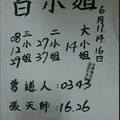 白小姐
6月11.14.16日
大小姐
14
二小姐
27
37
三小姐
08
12
39
曾道人：0343
張天師：16.26